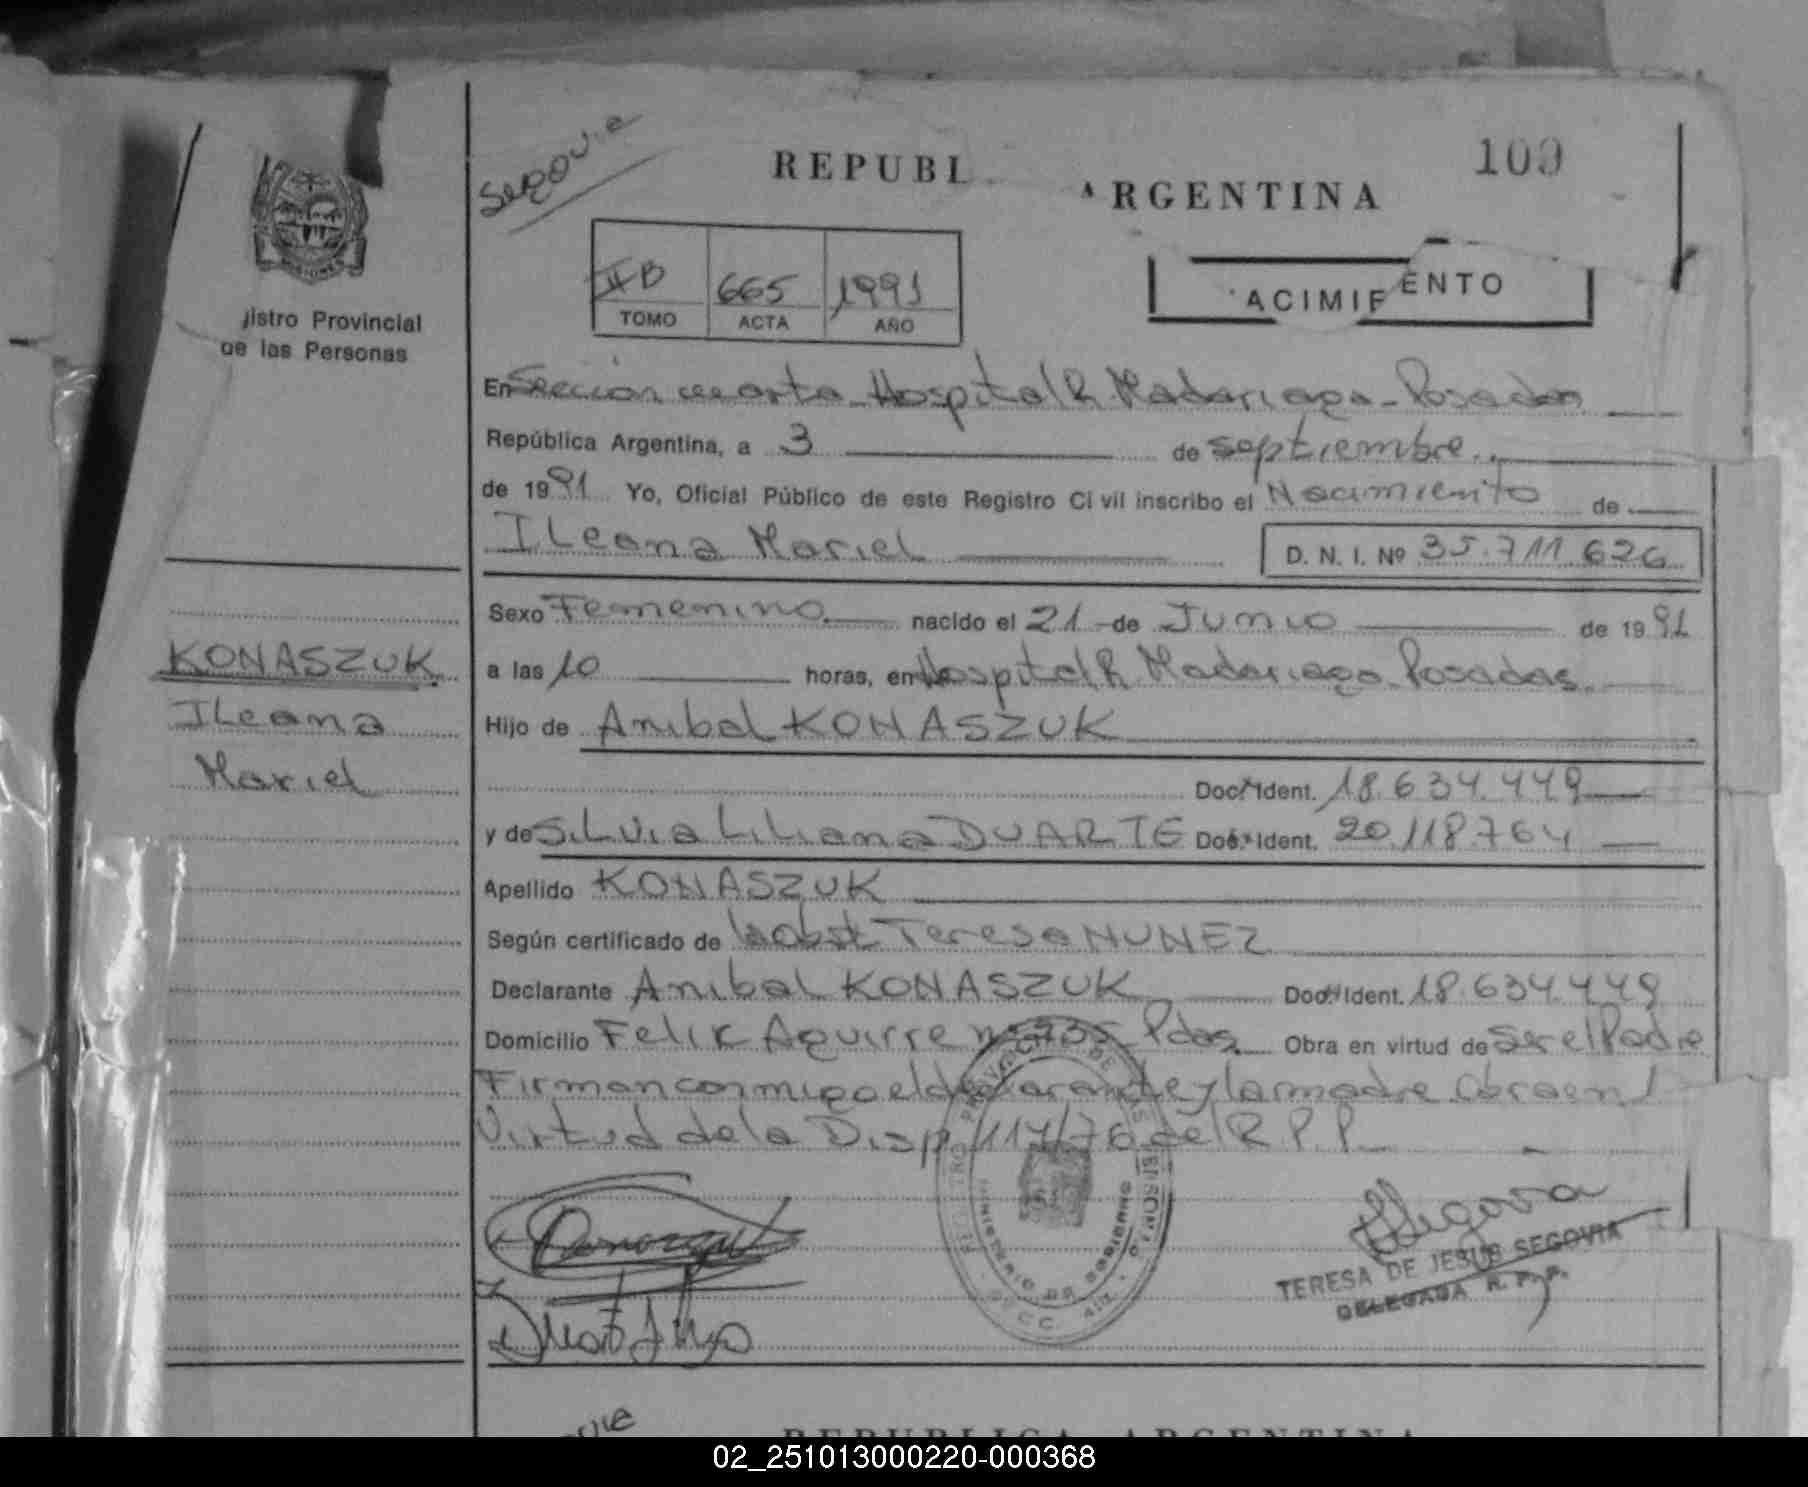 Segovia
REPUBL ARGENTINA
109
IIB 665 1991
TOMO ACTA AÑO
ACIMIENTO
MISIONES
istro Provincial
de las Personas
En Sección cuarta Hospital R. Madariaga - Posadas
República Argentina, a 3 de septiembre
de 1991 Yo, Oficial Público de este Registro Civil inscribo el Nacimiento de
ILeana Mariel D. N. I. Nº 35.711.626
Sexo Femenino nacido el 21 de Junio de 1991
a las 10 horas, en Hospital R. Madariaga Posadas
Hijo de Anibal KONASZUK
Doc. Ident. 18.634.449
y de SiLvia Liliana DUARTE Doc. Ident. 20.118.764
Apellido KONASZUK
Según certificado de Teresa NUNEZ
Declarante Anibal KONASZUK Doc. Ident. 18.634.449
Domicilio Felix Aguirre nº 5735 Pdas. Obra en virtud de ser el Padre
Firman conmigo el declarante y la madre Obra en
Virtud de la Disp 114/76 del R P P
KONASZUK
ILeana
Mariel
REGISTRO PROVINCIAL DE LAS PERSONAS
MINISTERIO DE GOBIERNO
SECC. 4ta.
Segovia
TERESA DE JESUS SEGOVIA
DELEGADA R. P. P.
REPUBLICA ARGENTINA
02_251013000220-000368